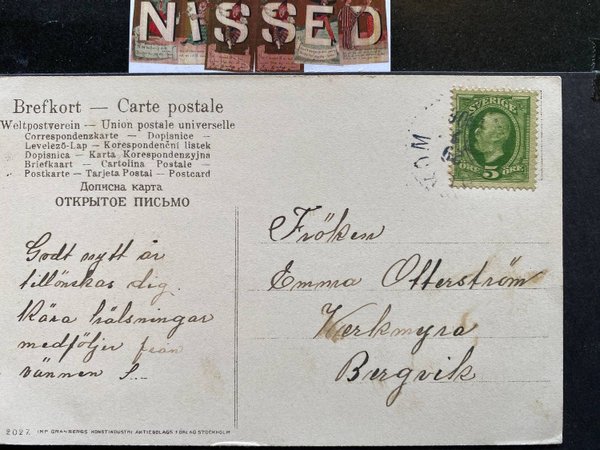 NISSED
Brefkort — Carte postale
Weltpostverein — Union postale universelle
Correspondenzkarte — Dopisnice
Levelező-Lap — Korespondenční listek
Dopisnica — Karta Korespondenzyjna
Briefkaart — Cartolina Postale —
Postkarte — Tarjeta Postal — Postcard
Дописна карта
ОТКРЫТОЕ ПИСЬМО
Godt nytt år
tillönskas dig.
Kära hälsningar
medföljer från
vännen S...
SVERIGE
ÖRE 5 ÖRE
Fröken
Emma Otterström
Werkmyra
Bergvik
2027. IMP. GRANBERGS KONSTINDUSTRI AKTIEBOLAGS FÖRLAG STOCKHOLM